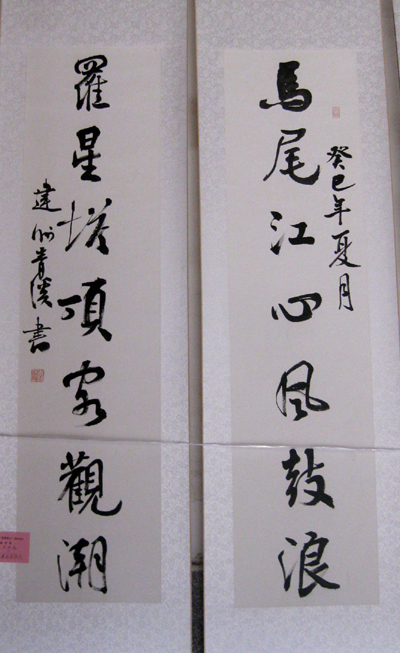 癸巳年夏月
馬尾江心風鼓浪
羅星塔頂客觀潮
建州書